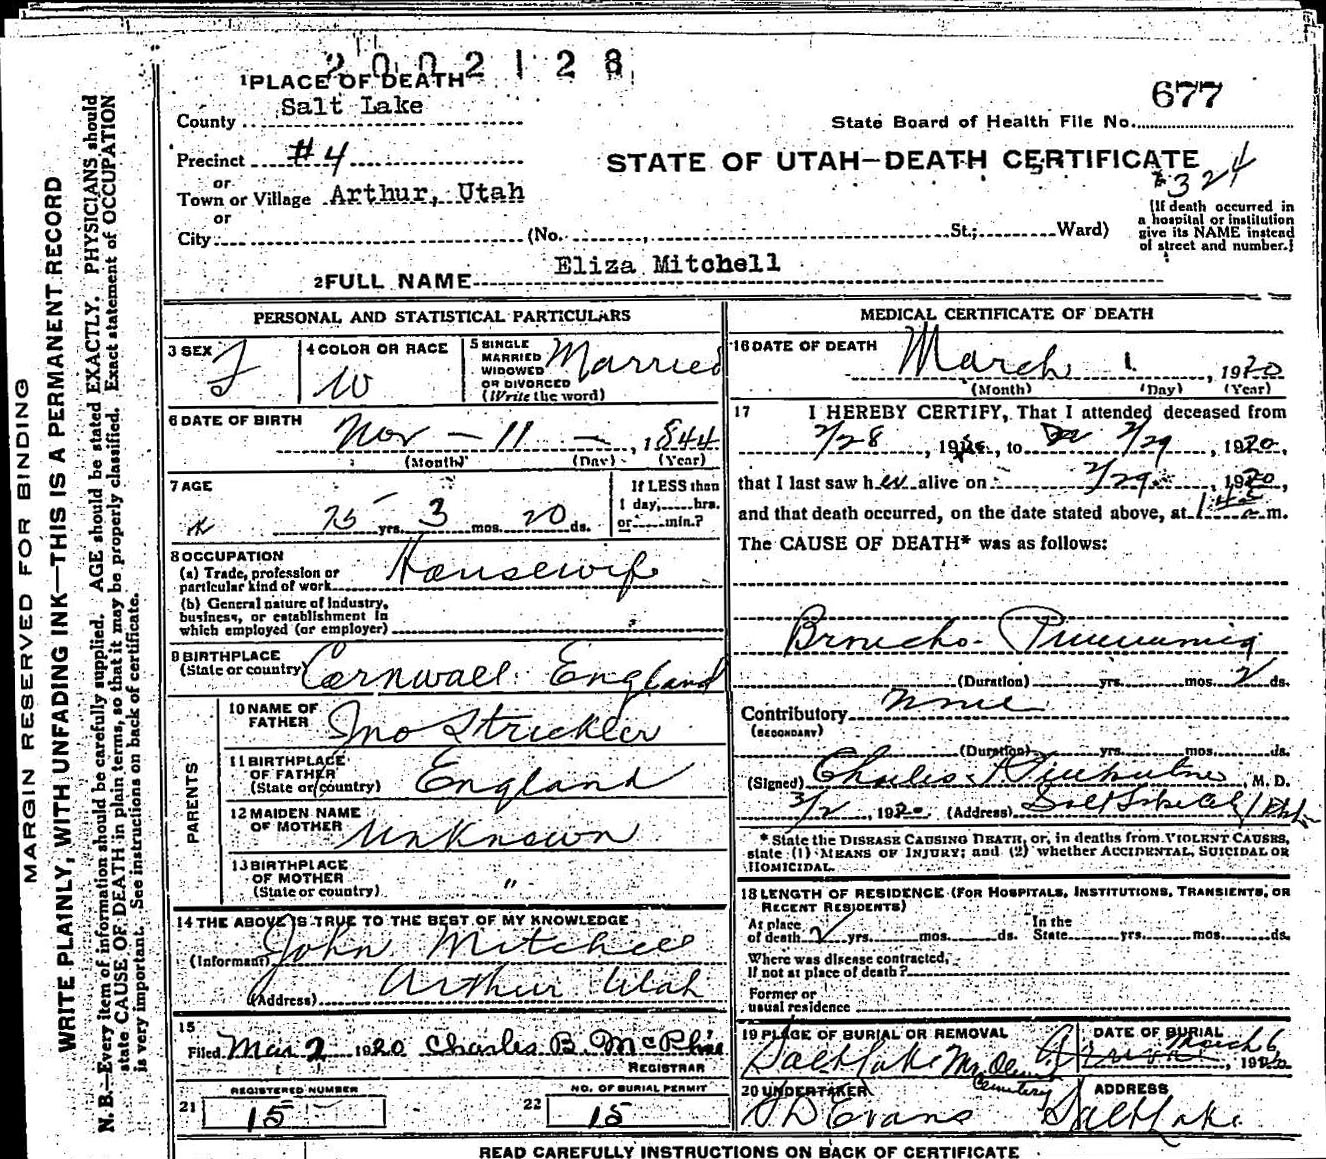 2002128
1 PLACE OF DEATH
677
County Salt Lake
State Board of Health File No.
Precinct #4
STATE OF UTAH—DEATH CERTIFICATE
324
or
Town or Village Arthur, Utah
or
City (No. , St.; Ward)
(If death occurred in
a hospital or institution
give its NAME instead
of street and number.)
2 FULL NAME Eliza Mitchell
PERSONAL AND STATISTICAL PARTICULARS
3 SEX F
4 COLOR OR RACE W
5 SINGLE
MARRIED
WIDOWED
OR DIVORCED
(Write the word)
Married
6 DATE OF BIRTH
Nov — 11 — , 1844
(Month) (Day) (Year)
7 AGE
75 yrs. 3 mos. 20 ds.
If LESS than
1 day, hrs.
or min.?
8 OCCUPATION
(a) Trade, profession or
particular kind of work Housewife
(b) General nature of Industry,
business, or establishment in
which employed (or employer)
9 BIRTHPLACE
(State or country) Cornwall England
PARENTS
10 NAME OF
FATHER Jno Strickler
11 BIRTHPLACE
OF FATHER
(State or country) England
12 MAIDEN NAME
OF MOTHER Unknown
13 BIRTHPLACE
OF MOTHER
(State or country) "
14 THE ABOVE IS TRUE TO THE BEST OF MY KNOWLEDGE
(Informant) John Mitchell
(Address) Arthur Utah
15
Filed Mar 2 1920 Charles B. McPhie
REGISTRAR
REGISTERED NUMBER
21 15
NO. OF BURIAL PERMIT
22 15
MEDICAL CERTIFICATE OF DEATH
16 DATE OF DEATH
March 1 , 1920
(Month) (Day) (Year)
17 I HEREBY CERTIFY, That I attended deceased from
2/28 , 1920, to 2/29 , 1920,
that I last saw her alive on 2/29 , 1920,
and that death occurred, on the date stated above, at 1 45 a m.
The CAUSE OF DEATH* was as follows:
Broncho-Pneumonia
(Duration) yrs. mos. 2 ds.
Contributory none
(SECONDARY)
(Duration) yrs. mos. ds.
(Signed) Charles , M. D.
3/2 , 1920 (Address) Salt Lake City
* State the DISEASE CAUSING DEATH, or, in deaths from VIOLENT CAUSES,
state (1) MEANS OF INJURY; and (2) whether ACCIDENTAL, SUICIDAL OR
HOMICIDAL.
18 LENGTH OF RESIDENCE (FOR HOSPITALS, INSTITUTIONS, TRANSIENTS, OR
RECENT RESIDENTS)
At place
of death 2 yrs. mos. ds.
In the
State yrs. mos. ds.
Where was disease contracted,
If not at place of death?
Former or
usual residence
19 PLACE OF BURIAL OR REMOVAL
Salt Lake Mt. Olivet
Cemetery
DATE OF BURIAL
March 6
, 1920
20 UNDERTAKER
S D Evans
ADDRESS
Salt Lake
READ CAREFULLY INSTRUCTIONS ON BACK OF CERTIFICATE
MARGIN RESERVED FOR BINDING
WRITE PLAINLY, WITH UNFADING INK—THIS IS A PERMANENT RECORD
N. B.—Every item of information should be carefully supplied. AGE should be stated EXACTLY. PHYSICIANS should
state CAUSE OF DEATH in plain terms, so that it may be properly classified. Exact statement of OCCUPATION
is very important. See instructions on back of certificate.